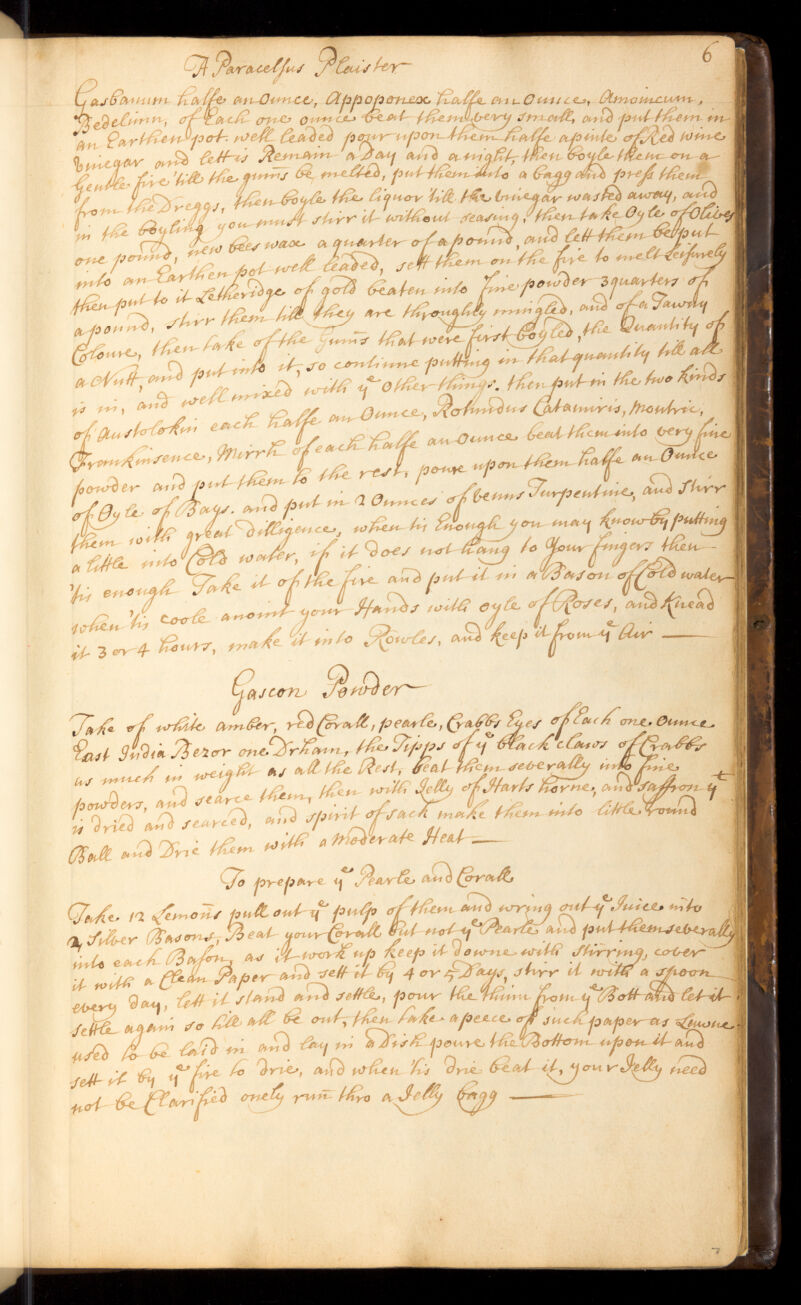 6
A Paracelsus Plaister
Gasbanum halfe an Ounce, Appoponex halfe an Ounce, Amoincum,
Bedelimn, of Each one ounce beat them very small, and put them in
an Earthen pot. well leaded pour upon them halfe a pinte of Red wine
vinegar and lett is Remain a Day and a night, then boyle them on a
Gentle fire 'till the gums be melted, put them into a bagg and press them
from the Dreggs, then boyle the liquor 'till the vinegar wasted away, and
in the boyling you must stirr it without seasing, then take Oyle of Olives
one pound, new bees wax a quarter of a pound, and lett them be put
into an Earthen pot well leaded, sett them on the fire to melt Leisurely
then put to it Letheridge of gold beaten into fine powder 3 quarters of
a pound, stirr them till they are throughly mingled, and of a Tawny
Coloure, then take of the Gums that were first boyled, the Quantity of
a Nutt, and put into it, so continue putting in that quantity till all
is in, and well mixed with ye other things. then put in the two kinds
of Austolokin each halfe an Ounce, Rotundus Catamiris, Moutric,
Frankinsence, Mirrh of each halfe an Ounce beat them into very fine
powder and put them to the rest, poure upon them halfe an Ounce
of Oyle of Bays. and put in 2 Ounces of venns Turpentine, and Stirr
them with great dilligence, when tis Enough you may know by putting
a little into Cold water, if it does not hang to Your fingers then
'tis enough Take it of the fire and put it in a Bason of Cold water
when 'tis coole anoint your Hands with oyle of Roses, and Knead
it 3 or 4 hours, make it into Rowles, and keep it from ye Air
Gascon Powder
Take of white amber, red Corall, pearle, Crabbs Eyes of Each one Ounce
East India Bezor one Drham, the Tipps of ye black claws of Crabbs
as much in weight as all the Rest, beat them severally into fine
powders, and searce them, then with Jelly of Harts horne, and saffron yt
is dried and searced, and spirit of sack make them into little round
Ball and Drie them with a Moderate Heat
To prepare ye Pearle and Corall
Take 12 Lemons pull out ye pulp of them and wring out ye Juice into
2 Silver Basons, Beat your Corall but not ye Pearle and put them severally
into each Bason, as it work up keep it downe with Stirring, cover
it with a Clean Paper and sett it by 4 or 5 Days, stirr it with a spoon
every day, lett it stand and settle, pour the thinn from ye Bott and let it
settle again so till all be out, then take a peece of such paper as Lawne
used to be laid in and lay in a Dish poure the Bottom upon it and
sett it by ye fire to drie, and when 'tis drie beat it, your Jelly need
not be Clarified onely run thro a Jelly bagg